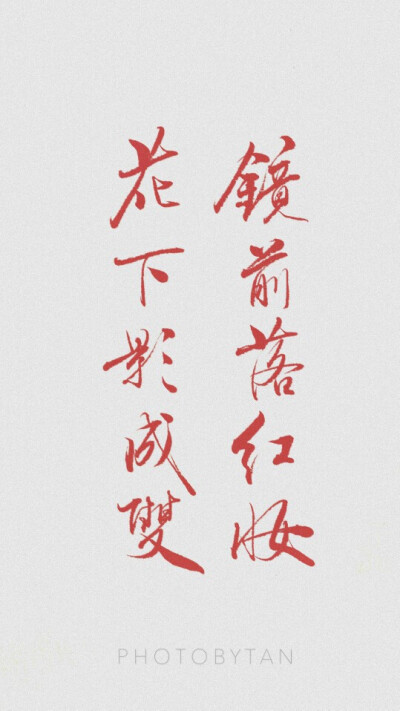 鏡前落红妝
花下影成雙
PHOTOBYTAN